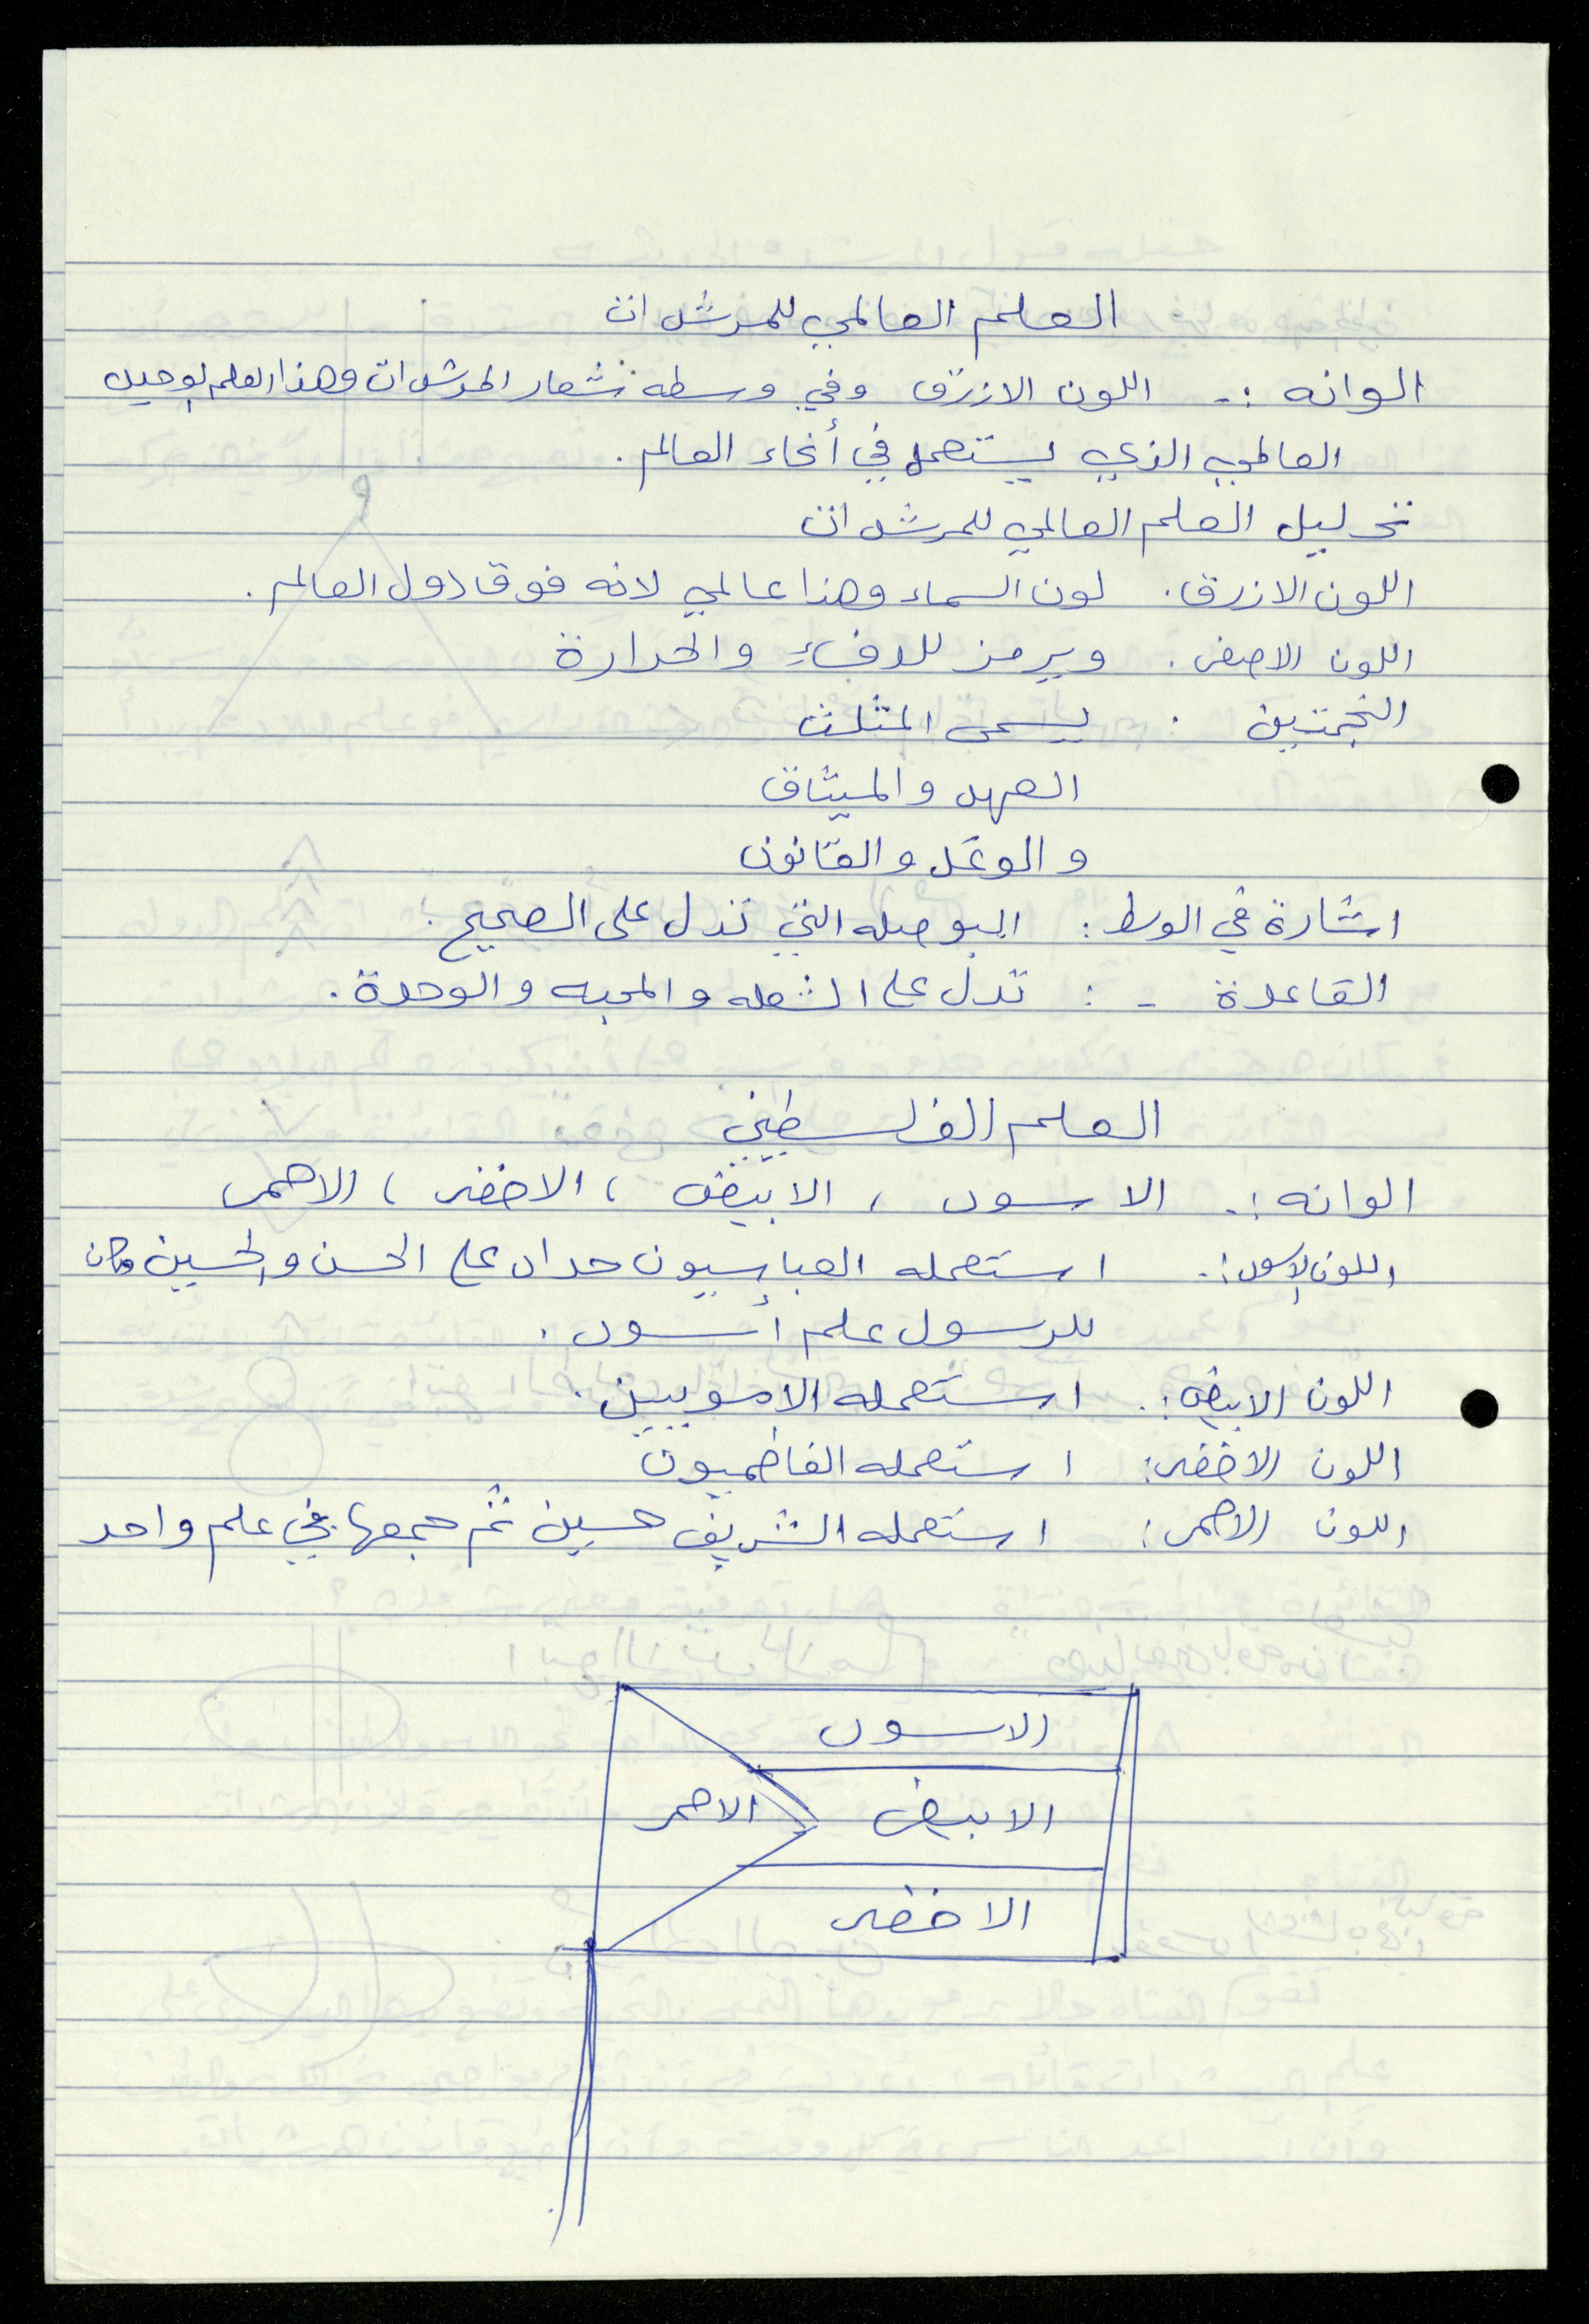 العلم العالمي للمرشدات
الوانه :- اللون الازرق وفي وسطه شعار المرشدات وهذا العلم الوحيد
العالمي الذي يستعمل في أنحاء العالم .
تحليل العلم العالمي للمرشدات
اللون الازرق . لون السماء وهذا عالمي لانه فوق دول العالم .
اللون الاصفر . ويرمز للدفء والحرارة
النجمتين . يسمى المثلث
العهد والميثاق
والوعد والقانون
اشارة في الوسط : البوصله التي تدل على الصحيح .
القاعدة - : تدل على الشعله والمحبه والوحدة .
العلم الفلسطيني
الوانه :. الاسود ، الابيض ، الاخضر ، الاحمر
اللون الاسود :. استعمله العباسيون حداد على الحسن والحسين وكان
للرسول علم أسود .
اللون الابيض :. استعمله الامويين .
اللون الاخضر : استعمله الفاطميون
اللون الاحمر : استعمله الشريف حسين ثم جمعها في علم واحد
الاسود
الابيض
الاحمر
الاخضر